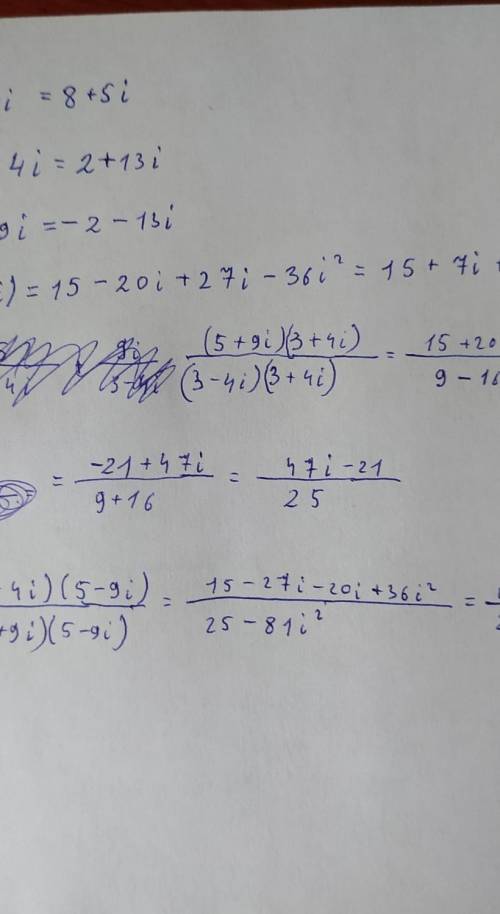 i = 8 + 5i
4i = 2 + 13i
9i = -2 - 13i
) = 15 - 20i + 27i - 36i² = 15 + 7i +
(5 + 9i)(3 + 4i) / (3 - 4i)(3 + 4i) = 15 + 20 / 9 - 16
= -21 + 47i / 9 + 16 = 47i - 21 / 25
4i)(5 - 9i) / +9i)(5 - 9i) = 15 - 27i - 20i + 36i² / 25 - 81i² =